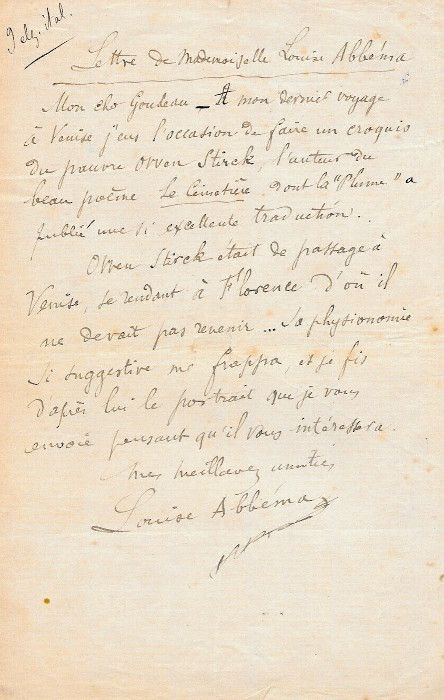 9 elz. ital.
Lettre de Mademoiselle Louise Abbéma
Mon cher Goudeau _ A mon dernier voyage
à Venise j'eus l'occasion de faire un croquis
du pauvre Owen Stirck, l'auteur du
beau poème Le Cimetière dont la "Plume" a
publié une si excellente traduction.
Owen Stirck était de passage à
Venise, se rendant à Florence d'où il
ne devait pas revenir ... Sa physionomie
si suggestive me frappa, et je fis
d'après lui le portrait que je vous
envoie pensant qu'il vous intéressera.
Mes meilleures amitiés
Louise Abbéma